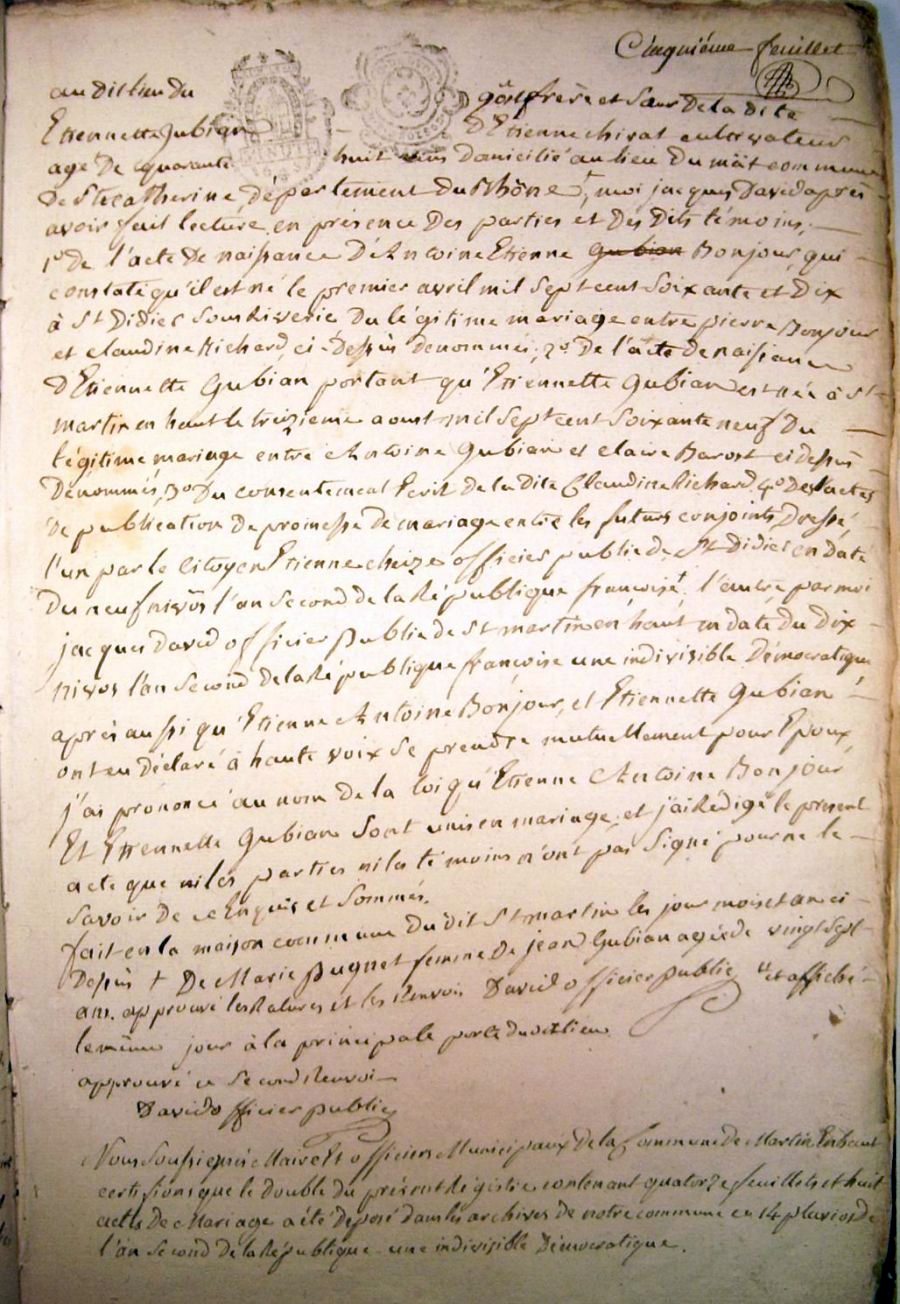 Cinquiéme feuillet
au dit lieu du frère et Sœur de la dite
Etiennette Gubian d'Etienne chirat cultivateur
agé de quarante huit ans domicilié au lieu du mât commune
de Ste Catherine département du Rhône, † moi jacques David après
avoir fait lecture en présence des parties et des dits témoins;
1º de l'acte de naissance d'Antoine Etienne Gubian Bonjour qui
constate qu'il est né le premier avril mil sept cent soixante et dix
à St Didier sous Riverie du légitime mariage entre pierre Bonjour
et claudine Richard, ci-dessus denommés; 2º de l'acte de naissance
d'Etiennette Gubian portant qu'Etiennette Gubian est née à St
martin en haut le treizieme aoust mil sept cent soixante neuf du
légitime mariage entre Antoine Gubian et claire Barost ci dessus
dénommés, 3º du consentement Ecrit de la dite Claudine Richard, 4º des actes
de publication de promesse de mariage entre les futurs conjoints dressé,
l'un par le citoyen Etienne cheize officier public de St Didier en date
du neuf nivos l'an second de la République françoise †. l'autre par moi
jacques David officier public de St martin en haut en date du dix
nivos l'an second de la République françoise une indivisible Démocratique
après aussi qu'Etienne Antoine Bonjour, et Etiennette Gubian
ont eu déclaré à haute voix se prendre mutuellement pour Epoux,
j'ai prononcé au nom de la loi qu'Etienne Antoine Bonjour
Et Etiennette Gubian sont unis en mariage, et j'ai Rédigé le present
acte que ni les parties ni les témoins n'ont pas signé pour ne le
savoir de ce Enquis et sommés.
fait en la maison commune du dit St martin les jour mois et an ci
dessus † De Marie puynet femme de jean Gubian agée de vingt sept
ans. approuvé les Ratures et les Renvois David officier public et affiché
le même jour à la principale porte du dit lieu
approuvé ce second Renvoi
David officier public
Nous Soussignés Maire Et officiers Municipaux de la Commune de Martin En haut
certifions que le double du présent Régistre contenant quatorze feuillets et huit
actes de Mariage a été déposé dans les archives de notre commune en 14 pluvios de
l'an second de la République une indivisible Démocratique.